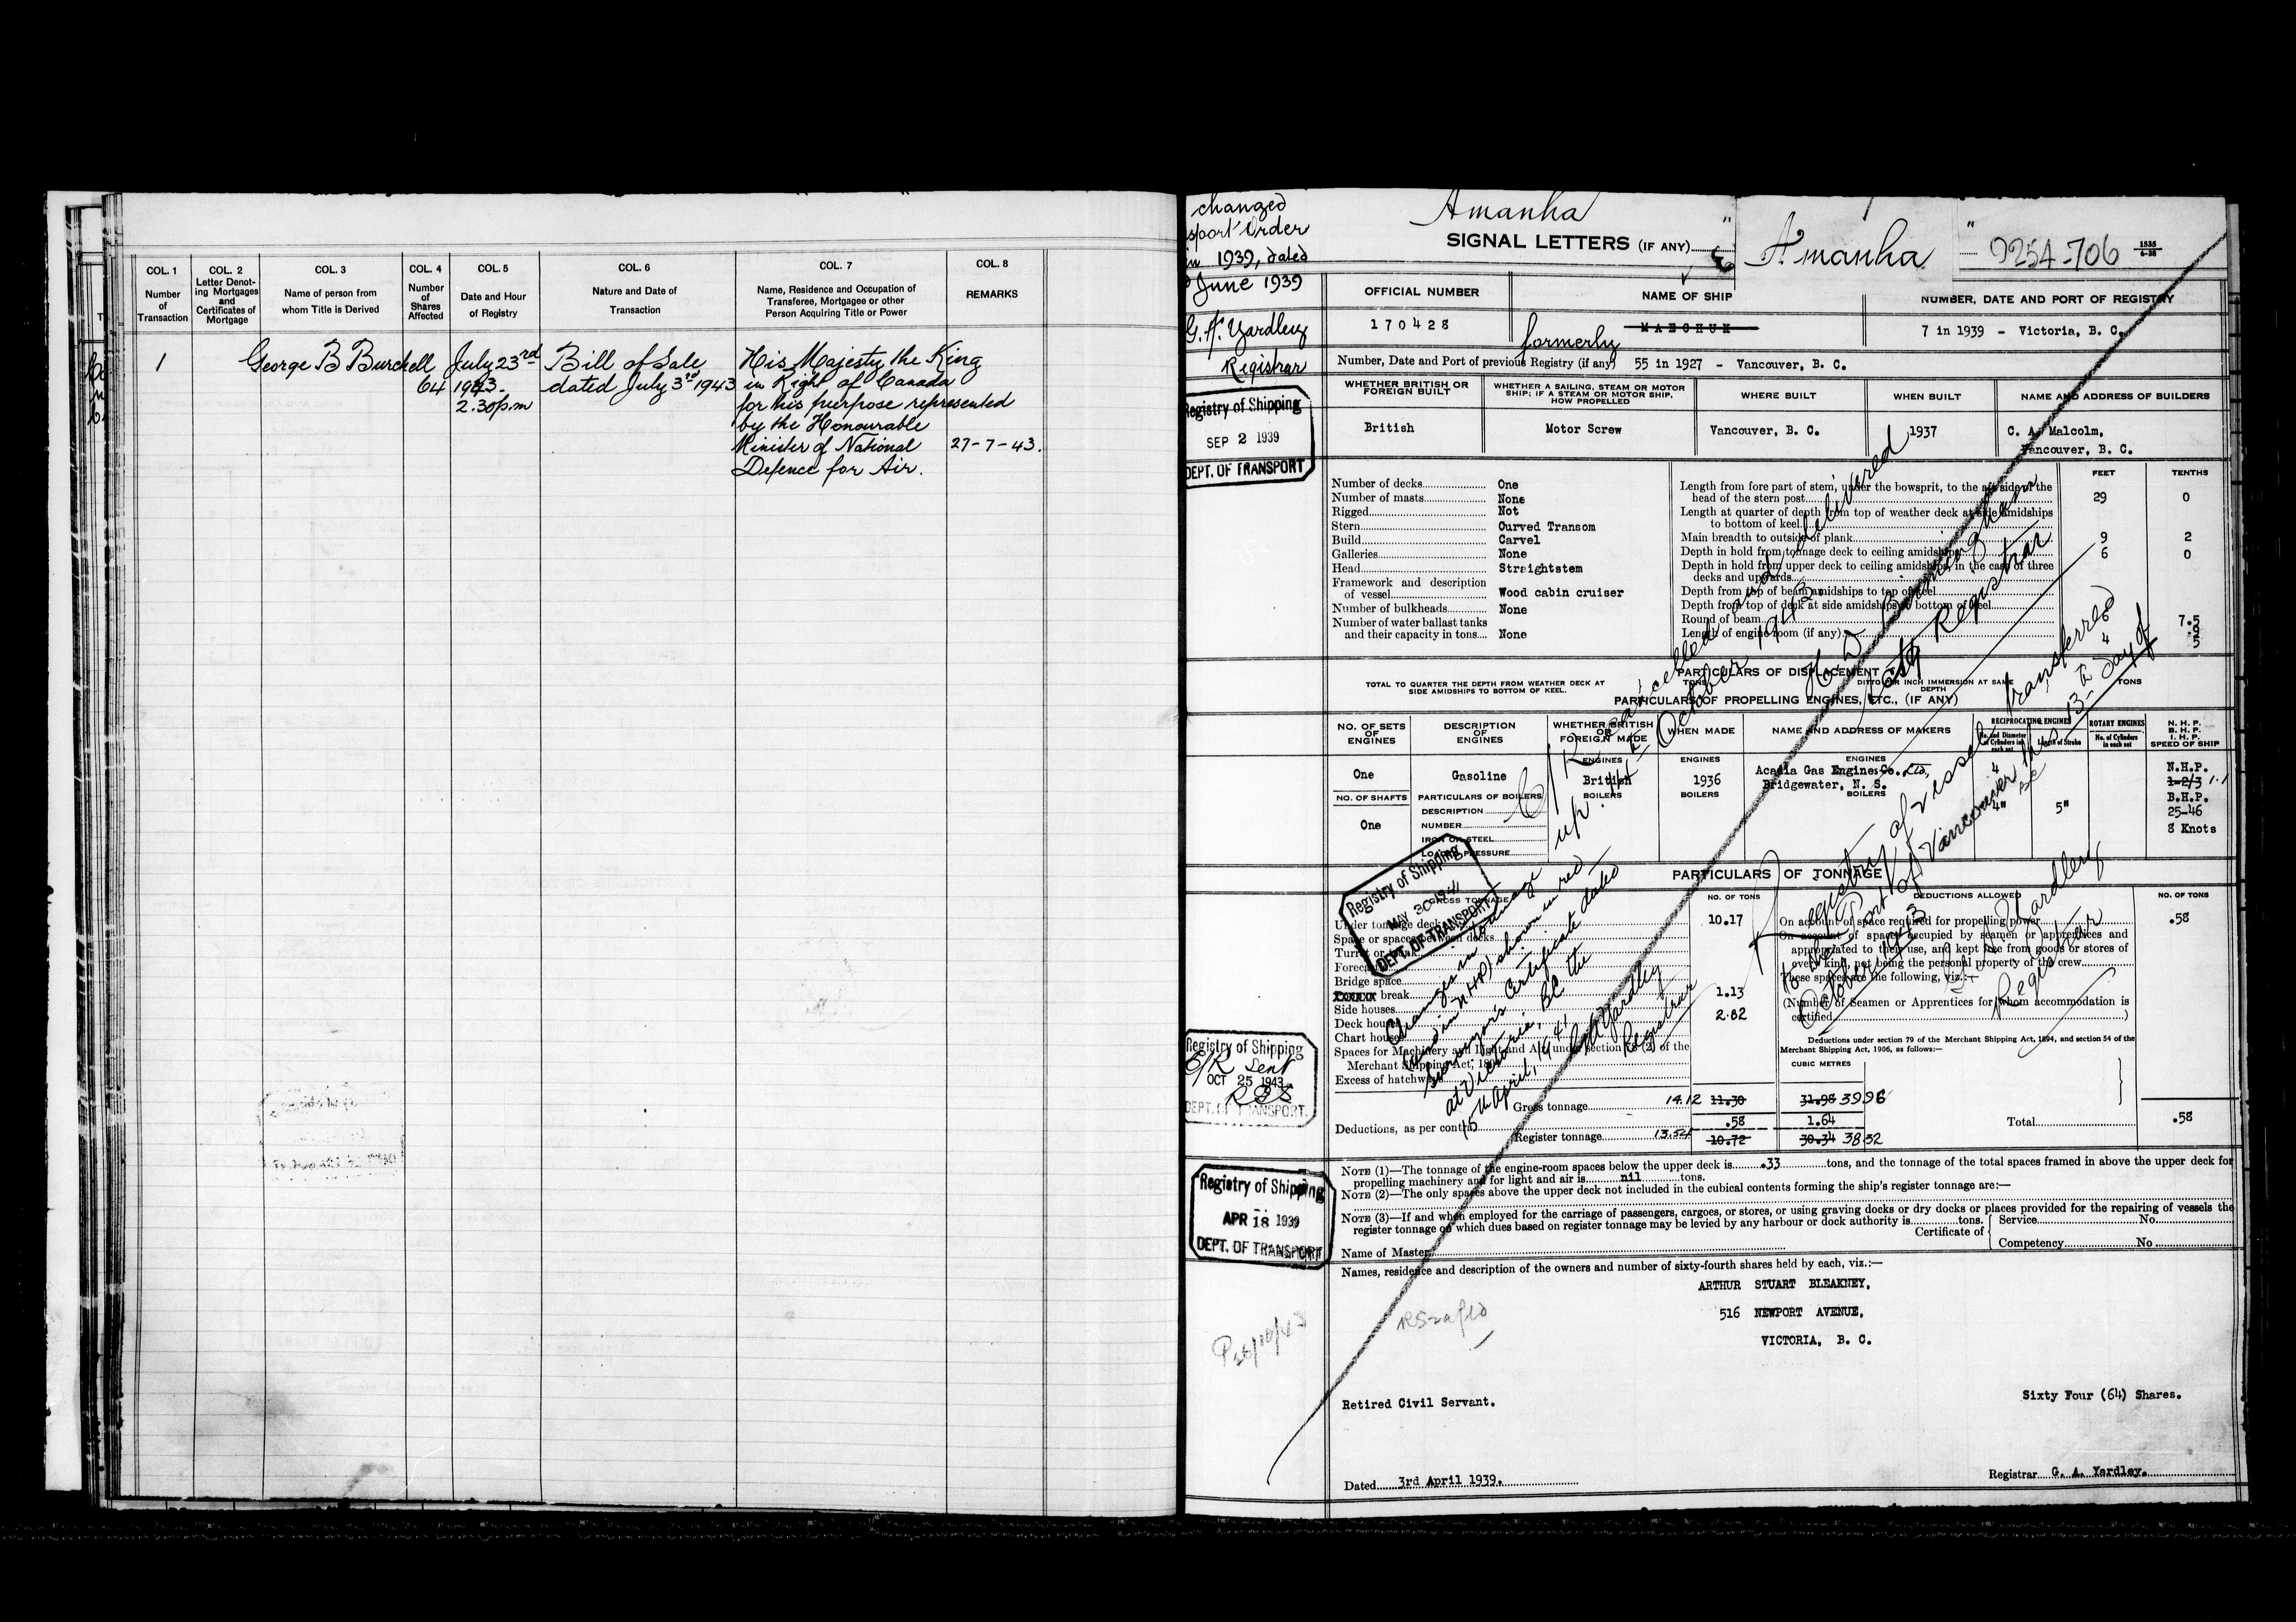 COL. 1
Number
of
Transaction
COL. 2
Letter Denot-
ing Mortgages
and
Certificates of
Mortgage
COL. 3
Name of person from
whom Title is Derived
COL. 4
Number
of
Shares
Affected
COL. 5
Date and Hour
of Registry
COL. 6
Nature and Date of
Transaction
COL. 7
Name, Residence and Occupation of
Transferee, Mortgagee or other
Person Acquiring Title or Power
COL. 8
REMARKS
1
George B Burchell
64
July 23rd
1943.
2.30p.m
Bill of Sale
dated July 3rd 1943
His Majesty the King
in Right of Canada
for his purpose represented
by the Honourable
Minister of National
Defence for Air.
27-7-43.
changed
sport Order
in 1939, dated
June 1939
G. A. Yardley
Registrar
Registry of Shipping
SEP 2 1939
DEPT. OF TRANSPORT
Amanha
SIGNAL LETTERS (IF ANY)
" Amanha "
9254-706
1535
6-38
OFFICIAL NUMBER
170428
NAME OF SHIP
formerly
NUMBER, DATE AND PORT OF REGISTRY
7 in 1939 - Victoria, B. C.
Number, Date and Port of previous Registry (if any) 55 in 1927 - Vancouver, B. C.
WHETHER BRITISH OR
FOREIGN BUILT
British
WHETHER A SAILING, STEAM OR MOTOR
SHIP; IF A STEAM OR MOTOR SHIP,
HOW PROPELLED
Motor Screw
WHERE BUILT
Vancouver, B. C.
WHEN BUILT
1937
NAME AND ADDRESS OF BUILDERS
C. A. Malcolm,
Vancouver, B. C.
Number of decks One
Number of masts None
Rigged Not
Stern Curved Transom
Build Carvel
Galleries None
Head Straightstem
Framework and description
of vessel Wood cabin cruiser
Number of bulkheads None
Number of water ballast tanks
and their capacity in tons None
FEET TENTHS
Length from fore part of stem, under the bowsprit, to the aft side of the
head of the stern post 29 0
Length at quarter of depth from top of weather deck at side amidships
to bottom of keel
Main breadth to outside of plank 9 2
Depth in hold from tonnage deck to ceiling amidships 6 0
Depth in hold from upper deck to ceiling amidships, in the case of three
decks and upwards
Depth from top of beam amidships to top of keel
Depth from top of deck at side amidships to bottom of keel 7.5
Round of beam .9
Length of engine room (if any) 4 5
PARTICULARS OF DISPLACEMENT
TOTAL TO QUARTER THE DEPTH FROM WEATHER DECK AT
SIDE AMIDSHIPS TO BOTTOM OF KEEL.
TONS
DITTO PER INCH IMMERSION AT SAME
DEPTH
TONS
PARTICULARS OF PROPELLING ENGINES, ETC., (IF ANY)
NO. OF SETS
OF
ENGINES
One
NO. OF SHAFTS
One
DESCRIPTION
OF
ENGINES
Gasoline
PARTICULARS OF BOILERS
DESCRIPTION
NUMBER
IRON OR STEEL
LOADED PRESSURE
WHETHER BRITISH
OR
FOREIGN MADE
ENGINES
British
BOILERS
WHEN MADE
ENGINES
1936
BOILERS
NAME AND ADDRESS OF MAKERS
ENGINES
Acadia Gas Engines Co. Ltd,
Bridgewater, N. S.
BOILERS
RECIPROCATING ENGINES
No. and Diameter
of Cylinders in
each set
4
4"
Length of Stroke
5"
ROTARY ENGINES
No. of Cylinders
in each set
N. H. P.
B. H. P.
I. H. P.
SPEED OF SHIP
N.H.P.
1-2/3 1.1
B.H.P.
25-46
8 Knots
C/R cancelled and delivered
up. 14th October 1943
Asst Registrar
Registry of vessel transferred
to the Port of Vancouver BC this 13th day of
October 1943
G. A. Yardley
Registrar
PARTICULARS OF TONNAGE
GROSS TONNAGE
NO. OF TONS
Under tonnage deck 10.17
Space or spaces between decks
Turret or trunk
Forecastle
Bridge space
break 1.13
Side houses
Deck houses 2.82
Chart house
Spaces for Machinery and Light and Air under section 78 (2) of the
Merchant Shipping Act, 1894
Excess of hatchways
Gross tonnage 14.12 11.30 31.98 39.96
Deductions, as per contra .58 1.64
Register tonnage 13.54 10.72 30.34 38.32
CUBIC METRES
DEDUCTIONS ALLOWED
NO. OF TONS
On account of space required for propelling power .58
On account of spaces occupied by seamen or apprentices and
appropriated to their use, and kept free from goods or stores of
every kind, not being the personal property of the crew
These spaces are the following, viz.:—
(Number of Seamen or Apprentices for whom accommodation is
certified )
Deductions under section 79 of the Merchant Shipping Act, 1894, and section 54 of the
Merchant Shipping Act, 1906, as follows:—
Total .58
Registry of Shipping
MAY 30 1941
DEPT. OF TRANSPORT
Changes in tonnage
and in NHP shown in red
Surveyor's Certificate dated
at Victoria, BC the
15th April, 1941
G A Yardley
Registrar
Registry of Shipping
C/R Sent
OCT 25 1943
DEPT. OF TRANSPORT.
Registry of Shipping
APR 18 1939
DEPT. OF TRANSPORT
NOTE (1)—The tonnage of the engine-room spaces below the upper deck is .33 tons, and the tonnage of the total spaces framed in above the upper deck for
propelling machinery and for light and air is nil tons.
NOTE (2)—The only spaces above the upper deck not included in the cubical contents forming the ship's register tonnage are:—
NOTE (3)—If and when employed for the carriage of passengers, cargoes, or stores, or using graving docks or dry docks or places provided for the repairing of vessels the
register tonnage on which dues based on register tonnage may be levied by any harbour or dock authority is tons.
Certificate of Service No.
Competency No
Name of Master
Names, residence and description of the owners and number of sixty-fourth shares held by each, viz.:—
ARTHUR STUART BLEAKNEY,
516 NEWPORT AVENUE,
VICTORIA, B. C.
Retired Civil Servant.
Sixty Four (64) Shares.
Dated 3rd April 1939.
Registrar G. A. Yardley.